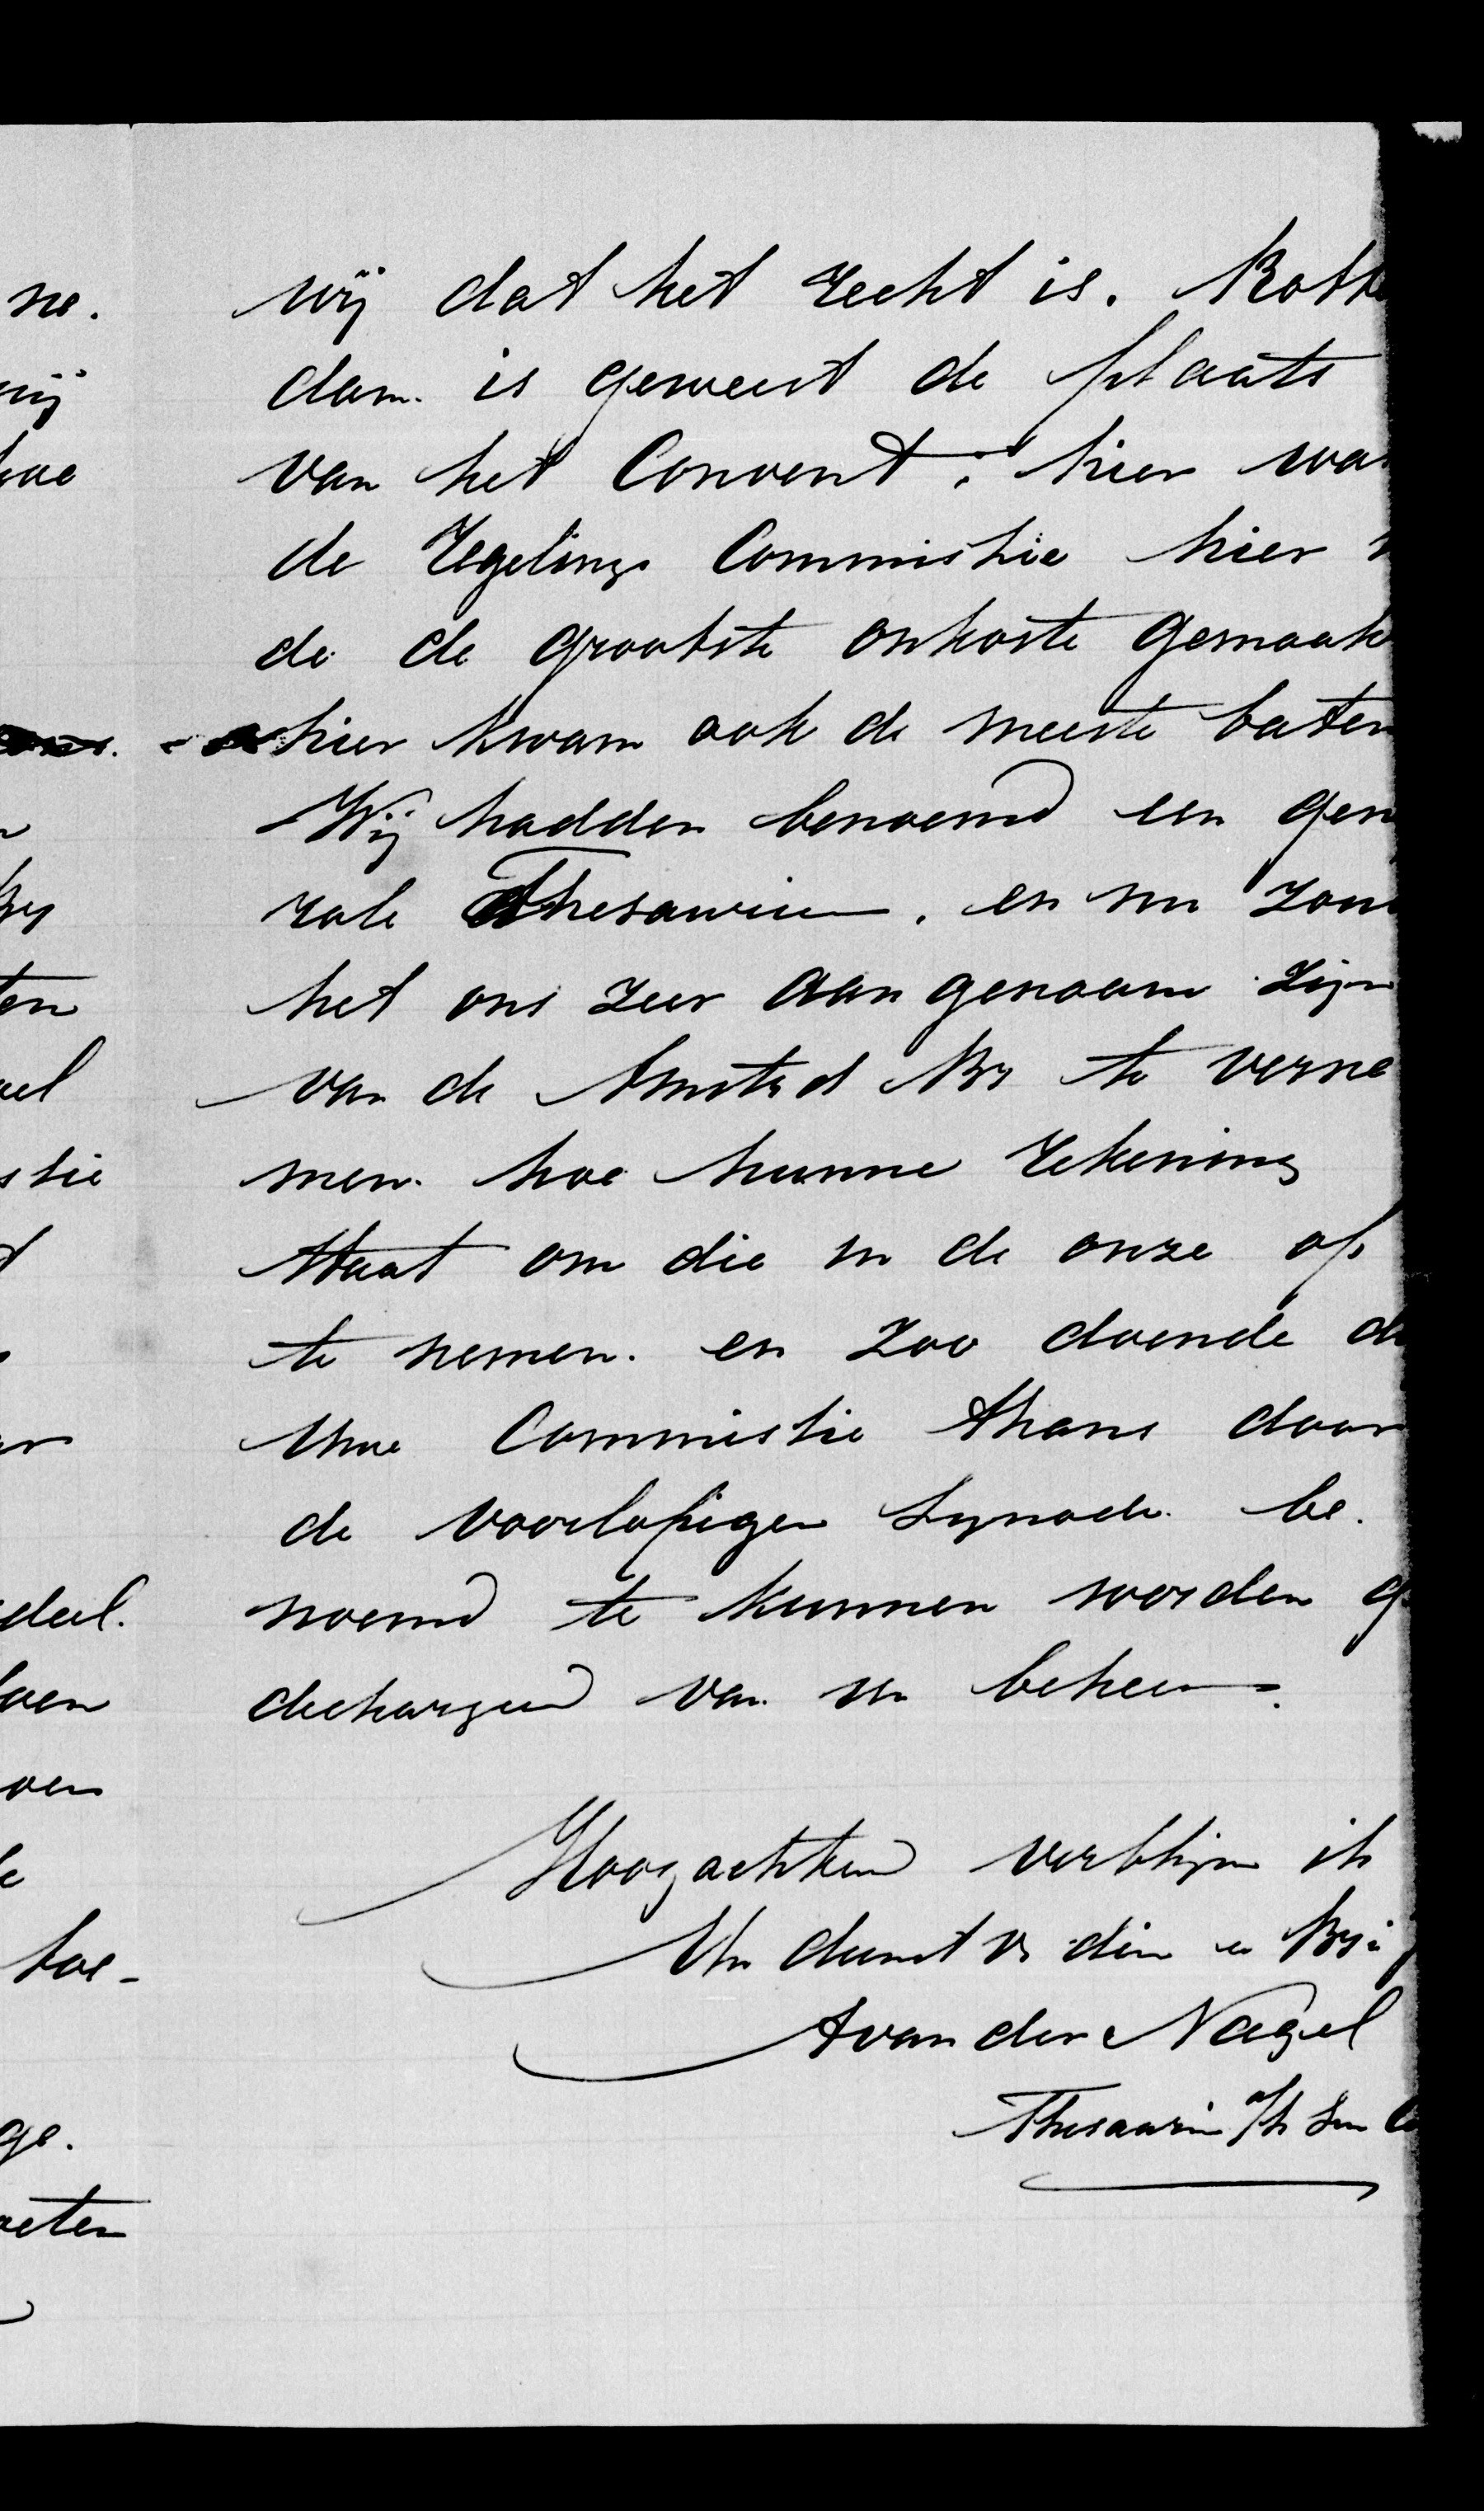 wij dat het recht is. Rotte
dam. is geweest de plaats
van het Convent; hier wa
de regelings Commissie hier
de de grootste onkoste gemaak
hier kwam ook de meeste baten
Wij hadden benoemd een gen
rale Thesaurier. en nu zou
het ons zeer aangenaam zijn
van de Amstd Brs te verne
men. hoe hunne rekening
staat om die in de onze op
te nemen. en zoo doende d
Uwe Commissie thans door
de voorlopigen Synode. be.
noemd te kunnen worden g
dechargeerd van ons beheer.
Hoogachtend verblijve ik
Uw dienstv dien en Br
A van der Nagel
Thesaurier
ne.
wij
hoe
ten
deel.
toe-
ge.